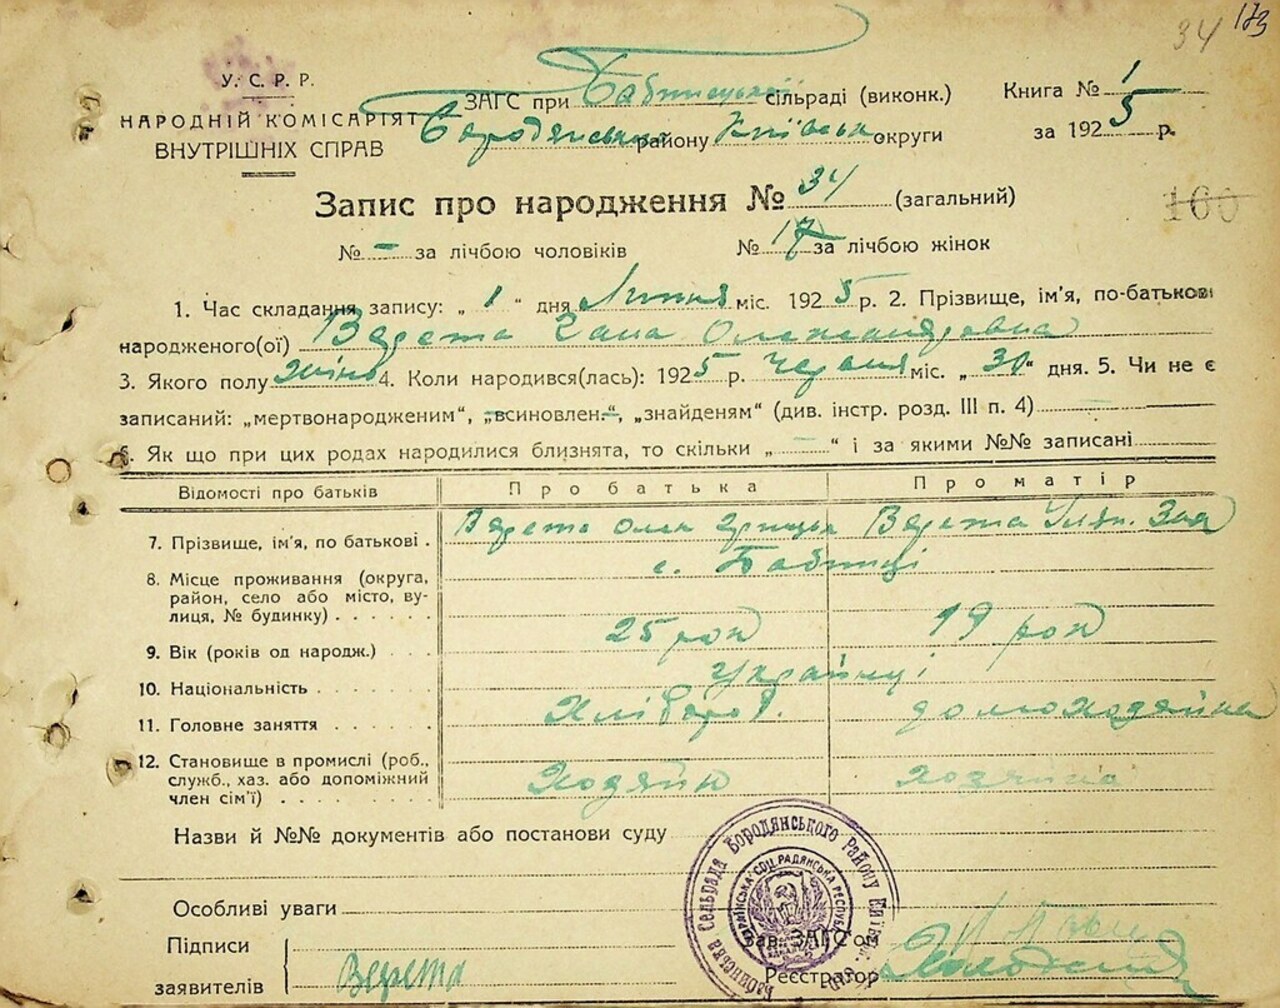 34 173
У. С. Р. Р.
НАРОДНІЙ КОМІСАРІЯТ
ВНУТРІШНІХ СПРАВ
ЗАГС при Бабинецькій сільраді (виконк.)
Бородянськ району Київськ округи
Книга № 1
за 1925 р.
Запис про народження № 34 (загальний)
160
№ – за лічбою чоловіків № 17 за лічбою жінок
1. Час складання запису: „ 1 “ дня Липня міс. 1925 р. 2. Прізвище, ім’я, по-батькові
народженого(ої) Верета Гана Олександровна
3. Якого полу жіно 4. Коли народився(лась): 1925 р. Червня міс. „ 30 “ дня. 5. Чи не є
записаний: „мертвонародженим“, „всиновлен.“, „знайденям“ (див. інстр. розд. III п. 4)
6. Як що при цих родах народилися близнята, то скільки „ — “ і за якими №№ записані
Відомості про батьків Про батька Про матір
7. Прізвище, ім’я, по батькові . Верета Олек Грицьк Верета Улян.
8. Місце проживання (округа, с. Бабинці
район, село або місто, ву-
лиця, № будинку) . . . . . .
9. Вік (років од народж.) . . . 25 рок 19 рок
10. Національність . . . . . . . українці
11. Головне заняття . . . . . . Хлібороб. домохозяйка
12. Становище в промислі (роб., Хозяїн хозяйка
служб., хаз. або допоміжний
член сім’ї) . . . . . . . . .
Назви й №№ документів або постанови суду
Особливі уваги
Підписи
заявителів Верета
Зав. ЗАГС’ом
Реєстратор
Бабинська Сельрада Бородянського Району Київ
УКРАЇНСЬКА СОЦ. РАДЯНСЬКА РЕСПУБЛ